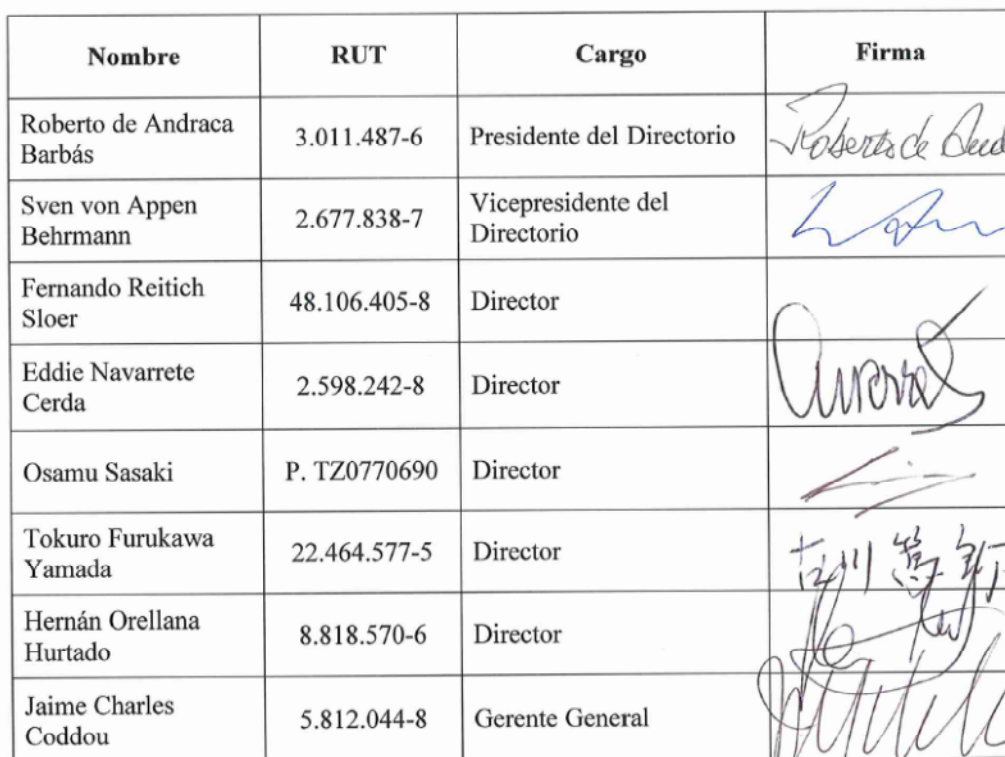 Nombre RUT Cargo Firma
Roberto de Andraca
Barbás 3.011.487-6 Presidente del Directorio Roberto de
Sven von Appen
Behrmann 2.677.838-7 Vicepresidente del
Directorio
Fernando Reitich
Sloer 48.106.405-8 Director
Eddie Navarrete
Cerda 2.598.242-8 Director
Osamu Sasaki P. TZ0770690 Director
Tokuro Furukawa
Yamada 22.464.577-5 Director 古川
Hernán Orellana
Hurtado 8.818.570-6 Director
Jaime Charles
Coddou 5.812.044-8 Gerente General